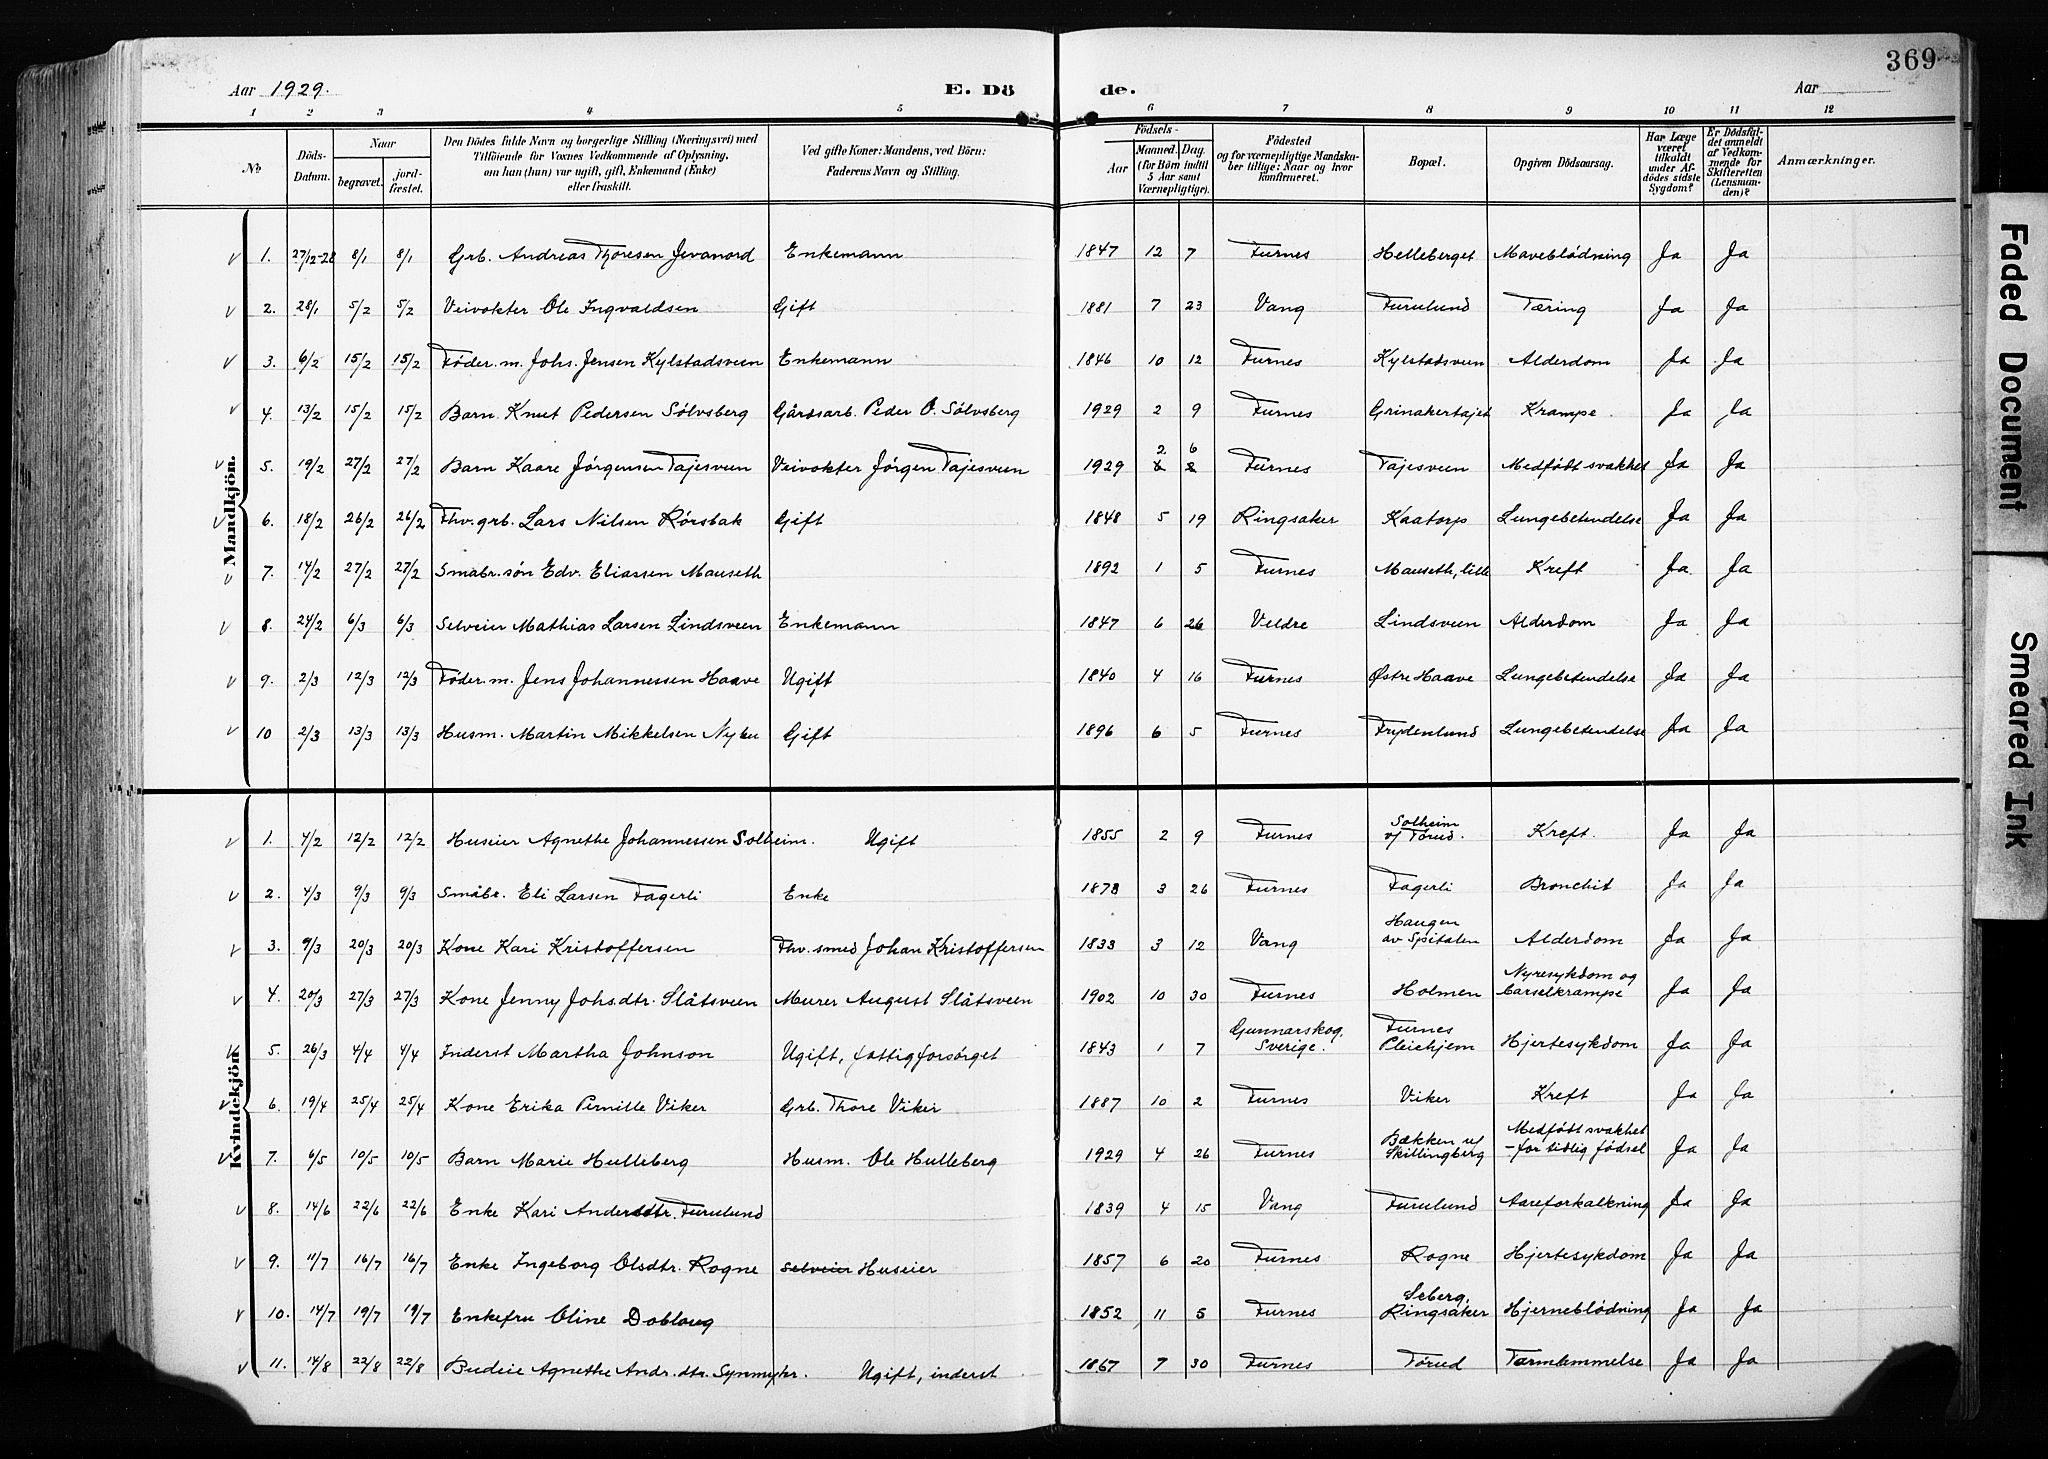 369
Aar 1929. E. Dö de. Aar
1 2 3 4 5 6 7 8 9 10 11 12
No
Döds-Datum.
Naar
begravet.
jord-fæstet.
Den Dödes fulde Navn og borgerlige Stilling (Næringsvei) med
Tilföiende for Voxnes Vedkommende af Oplysning,
om han (hun) var ugift, gift, Enkemand (Enke)
eller fraskilt.
Ved gifte Koner: Mandens, ved Börn:
Faderens Navn og Stilling.
Födsels-
Aar
Maaned. Dag.
(for Börn indtil
5 Aar samt
Værnepligtige).
Födested
og for værnepligtige Mandska-
ber tillige: Naar og hvor
konfirmeret.
Bopæl.
Opgiven Dödsaarsag.
Har Læge
været
tilkaldt
under Af-
dödes sidste
Sygdom?
Er Dödsfal-
det anmeldt
af Vedkom-
mende for
Skifteretten
(Lensman-
den)?
Anmærkninger.
Mandkjön.
v 1. 27/12-28 8/1 8/1 Grb. Andreas Thoresen Jevanord Enkemann 1847 12 7 Furnes Helleberget Maveblödning Ja Ja
v 2. 28/1 5/2 5/2 Veivokter Ole Ingvaldsen Gift 1881 7 23 Vang Furulund Tæring Ja Ja
v 3. 6/2 15/2 15/2 Föder.m. Johs. Jensen Kylstadsveen Enkemann 1846 10 12 Furnes Kylstadsveen Alderdom Ja Ja
v 4. 13/2 15/2 15/2 Barn Knut Pedersen Sölvsberg Gårdsarb. Peder O. Sölvsberg 1929 2 9 Furnes Grinakertajet Krampe. Ja Ja
v 5. 19/2 27/2 27/2 Barn Kaare Jörgensen Tajesveen Veivokter Jörgen Tajesveen 1929 2 6 Furnes Tajesveen Medfödt svakhet Ja Ja
v 6. 18/2 26/2 26/2 Fhv.grb. Lars Nilsen Rörsbak Gift 1848 5 19 Ringsaker Kaatorp Lungebetendelse Ja Ja
v 7. 14/2 27/2 27/2 Småbr.sön Edv. Eliassen Mauseth 1892 1 5 Furnes Mauseth, lille Kreft Ja Ja
v 8. 24/2 6/3 6/3 Selveier Mathias Larsen Lindsveen Enkemann 1847 6 26 Veldre Lindsveen Alderdom Ja Ja
v 9. 2/3 12/3 12/3 Föder.m. Jens Johannessen Haave Ugift 1840 4 16 Furnes Østre Haave Lungebetendelse Ja Ja
v 10 2/3 13/3 13/3 Husm. Martin Mikkelsen Nybu Gift 1896 6 5 Furnes Frydenlund Lungebetendelse Ja Ja
Kvindekjön.
v 1. 4/2 12/2 12/2 Huseier Agnethe Johannessen Solheim. Ugift 1855 2 9 Furnes Solheim v/ Törud. Kreft. Ja Ja
v 2. 4/3 9/3 9/3 Småbr. Eli Larsen Fagerli Enke 1873 3 26 Furnes Fagerli Bronchit Ja Ja
v 3. 9/3 20/3 20/3 Kone Kari Kristoffersen Fhv. smed Johan Kristoffersen 1833 3 12 Vang Haugen av Spitalen Alderdom Ja Ja
v 4. 20/3 27/3 27/3 Kone Jenny Johs.dtr. Slåtsveen Murer August Slåtsveen 1902 10 30 Furnes Holmen Nyresykdom og barselkrampe Ja Ja
v 5. 26/3 4/4 4/4 Inderst Martha Johnson Ugift, fattigforsörget 1843 1 7 Gunnarskog, Sverige. Furnes Pleiehjem Hjertesykdom Ja Ja
v 6. 19/4 25/4 25/4 Kone Erika Pernille Viker Grb. Thore Viker 1887 10 2 Furnes Viker Kreft Ja Ja
v 7. 6/5 10/5 10/5 Barn Marie Hulleberg Husm. Ole Hulleberg 1929 4 26 Furnes Bækken u/ Skillingberg Medfödt svakhet - for tidlig födsel Ja Ja
v 8. 14/6 22/6 22/6 Enke Kari Andersdtr. Furulund 1839 4 15 Vang Furulund Aareforkalkning Ja Ja
v 9. 11/7 16/7 16/7 Enke Ingeborg Olsdtr. Rogne selveier Huseier 1857 6 20 Furnes Rogne Hjertesykdom Ja Ja
v 10. 14/7 19/7 19/7 Enkefru Oline Dobloug 1852 11 5 Furnes Seberg, Ringsaker Hjerneblödning Ja Ja
v 11. 14/8 22/8 22/8 Budeie Agnethe Andr.dtr. Synmyhr. Ugift, inderst 1867 7 30 Furnes Törud Tarmlemmelse Ja Ja
Faded Document
Smeared Ink